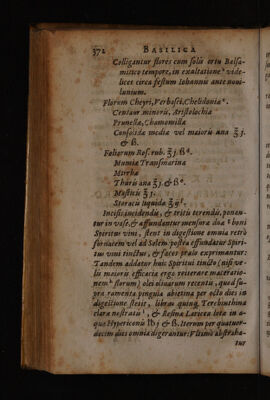 372 BASILICA
Colligantur flores cum solis ortu Balsa-
mistico tempore, in exaltatione videlicet
licet circa festum Iohannis ante novi-
lunium.
Florum Cheyri, Verbasci, Chelidoniæ
Centaur minoris, Aristolochia
Prunella, Chamomilla
Consolida media vel maioris ana ℥ j.
& ß.
Foliorum Ros. rub. ℥ j. ß
Mumiæ Transmarina
Mirrha
Thuris ana ℥ j. & ß
Masticis ℥ j.
Storacis liquida ℥ ij.
Incisis incidendis, & tritis terendis, ponan-
tur in vase, & affundantur mensura duæ boni
Spiritus vini, stent in digestione omnia retrò
fornacem vel ad Solem: postea effundatur Spiri-
tus vini tinctus, & faces praelo exprimantur:
Tandem addatur huic Spiritui tincto (nisi ve-
lis maioris efficacia ergo reiterare maceratio-
nem florum) olei olivarum recentis, quod su-
pra ramenta pinguia abietina per octo dies in
digestione stetit, libras quinq. Terebinthina
clara nostratis, & Resina Laricea lota in a-
qua Hypericonis ℔ j & ß. Iterum per quatuor-
decim dies omnia digerantur: Vltimò abstraha-
tur